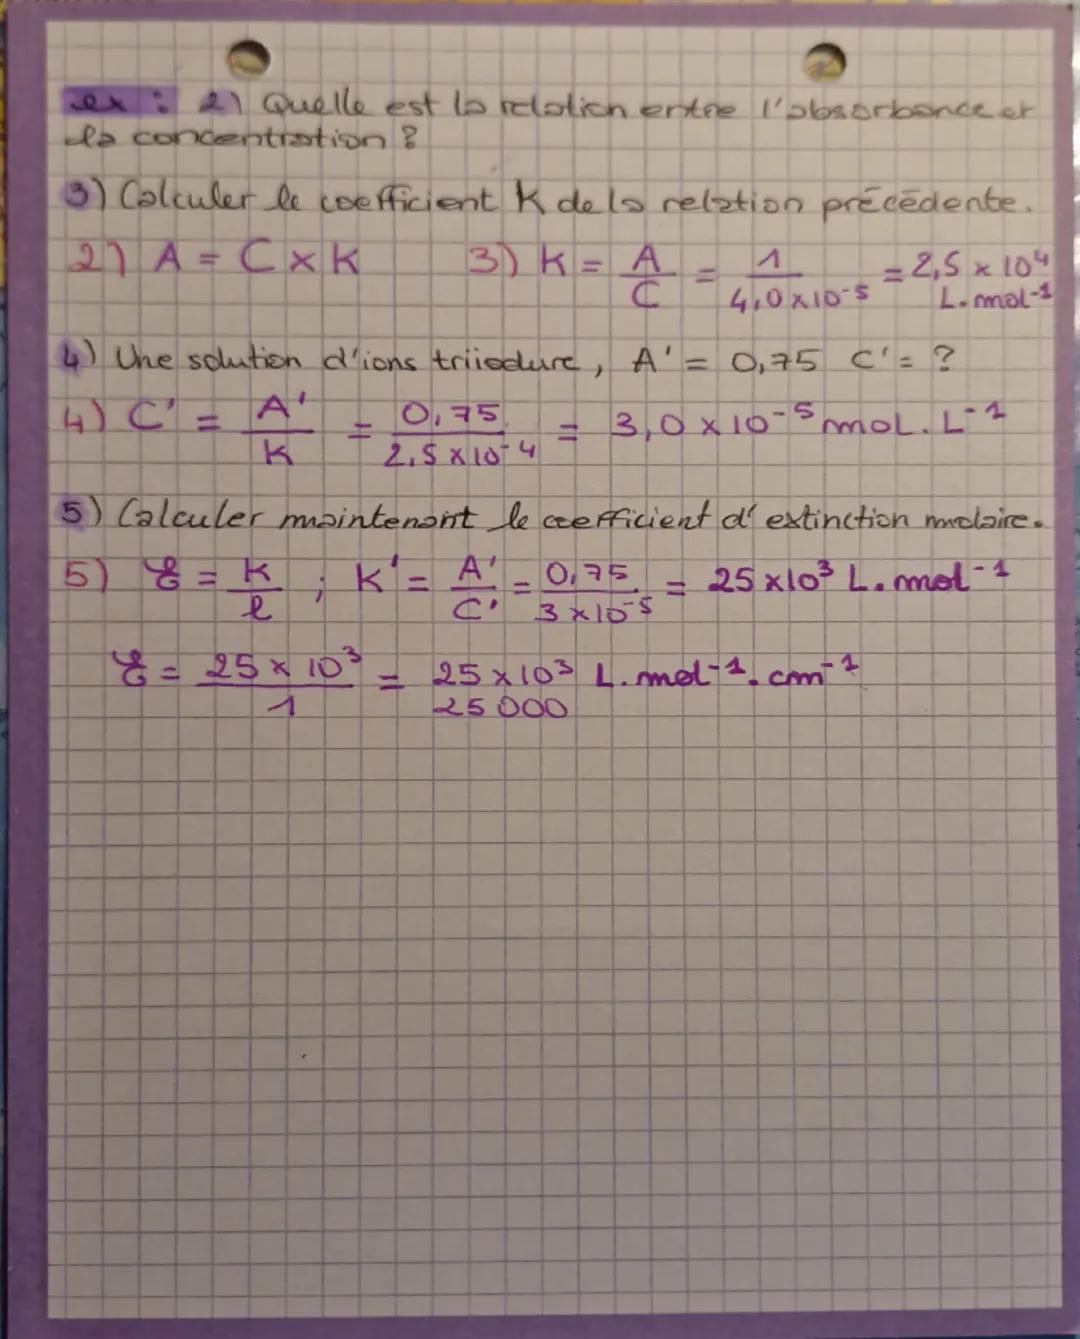 ex : 2) Quelle est la relation entre l'absorbance et
la concentration ?
3) Calculer le coefficient K de la relation précédente.
2) A = C x K 3) K = A/C = 1/4,0 x 10^-5 = 2,5 x 10^4 L.mol^-1
4) Une solution d'ions triiodure, A' = 0,75 C' = ?
4) C' = A'/K = 0,75/2,5 x 10^-4 = 3,0 x 10^-5 mol.L^-1
5) Calculer maintenant le coefficient d'extinction molaire.
5) Ɛ = K/l ; K' = A'/C' = 0,75/3 x 10^-5 = 25 x 10^3 L.mol^-1
Ɛ = 25 x 10^3/1 = 25 x 10^3 L.mol^-1.cm^-1
25 000